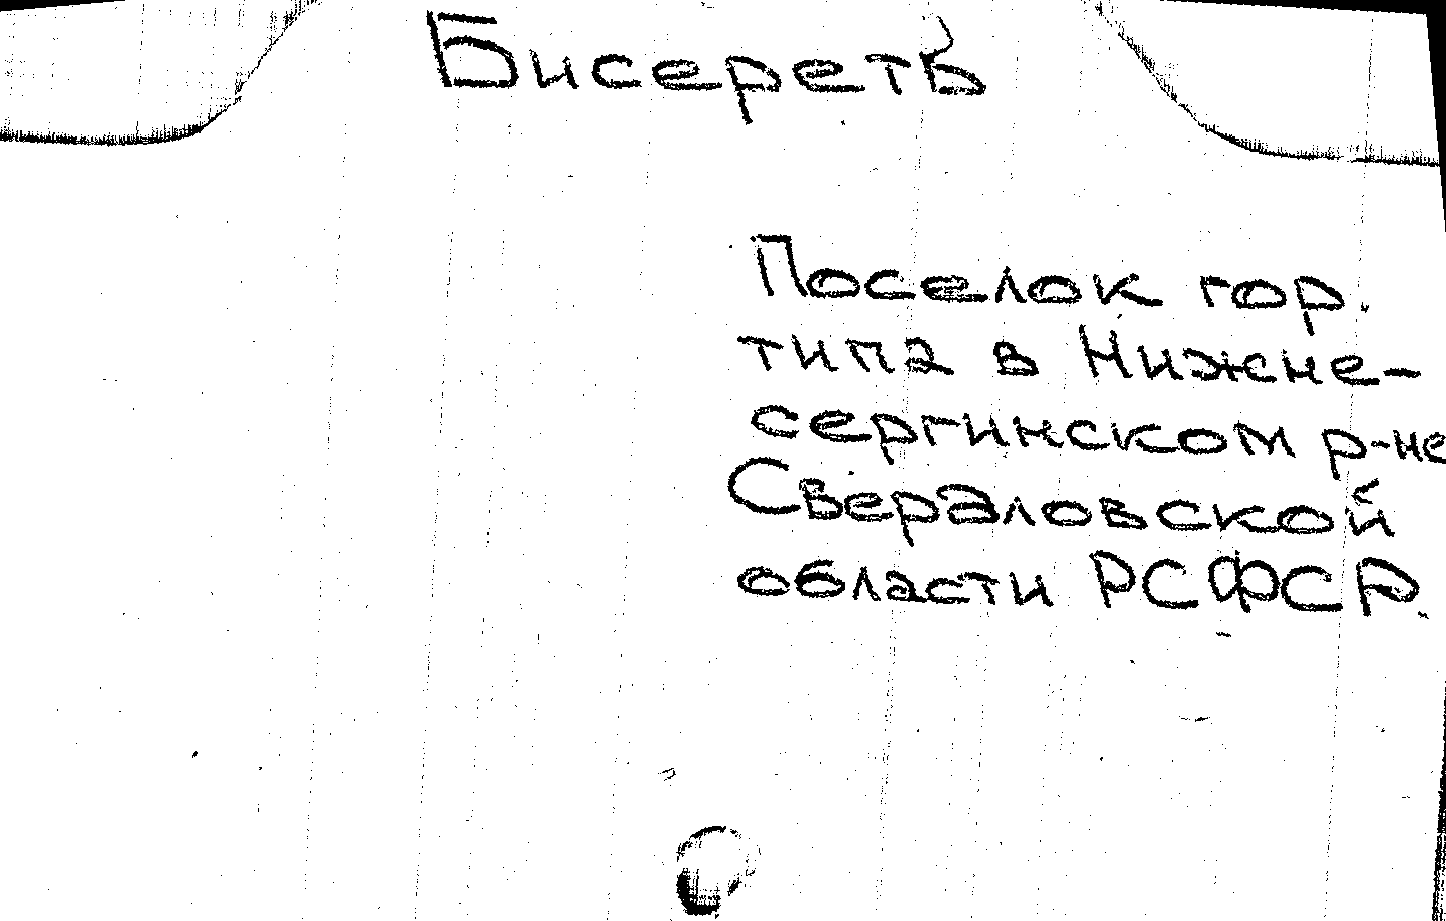 Бисереть
Поселок гор.
типа в Нижне-
сергинском р-не
Свердловской
области РСФСР.